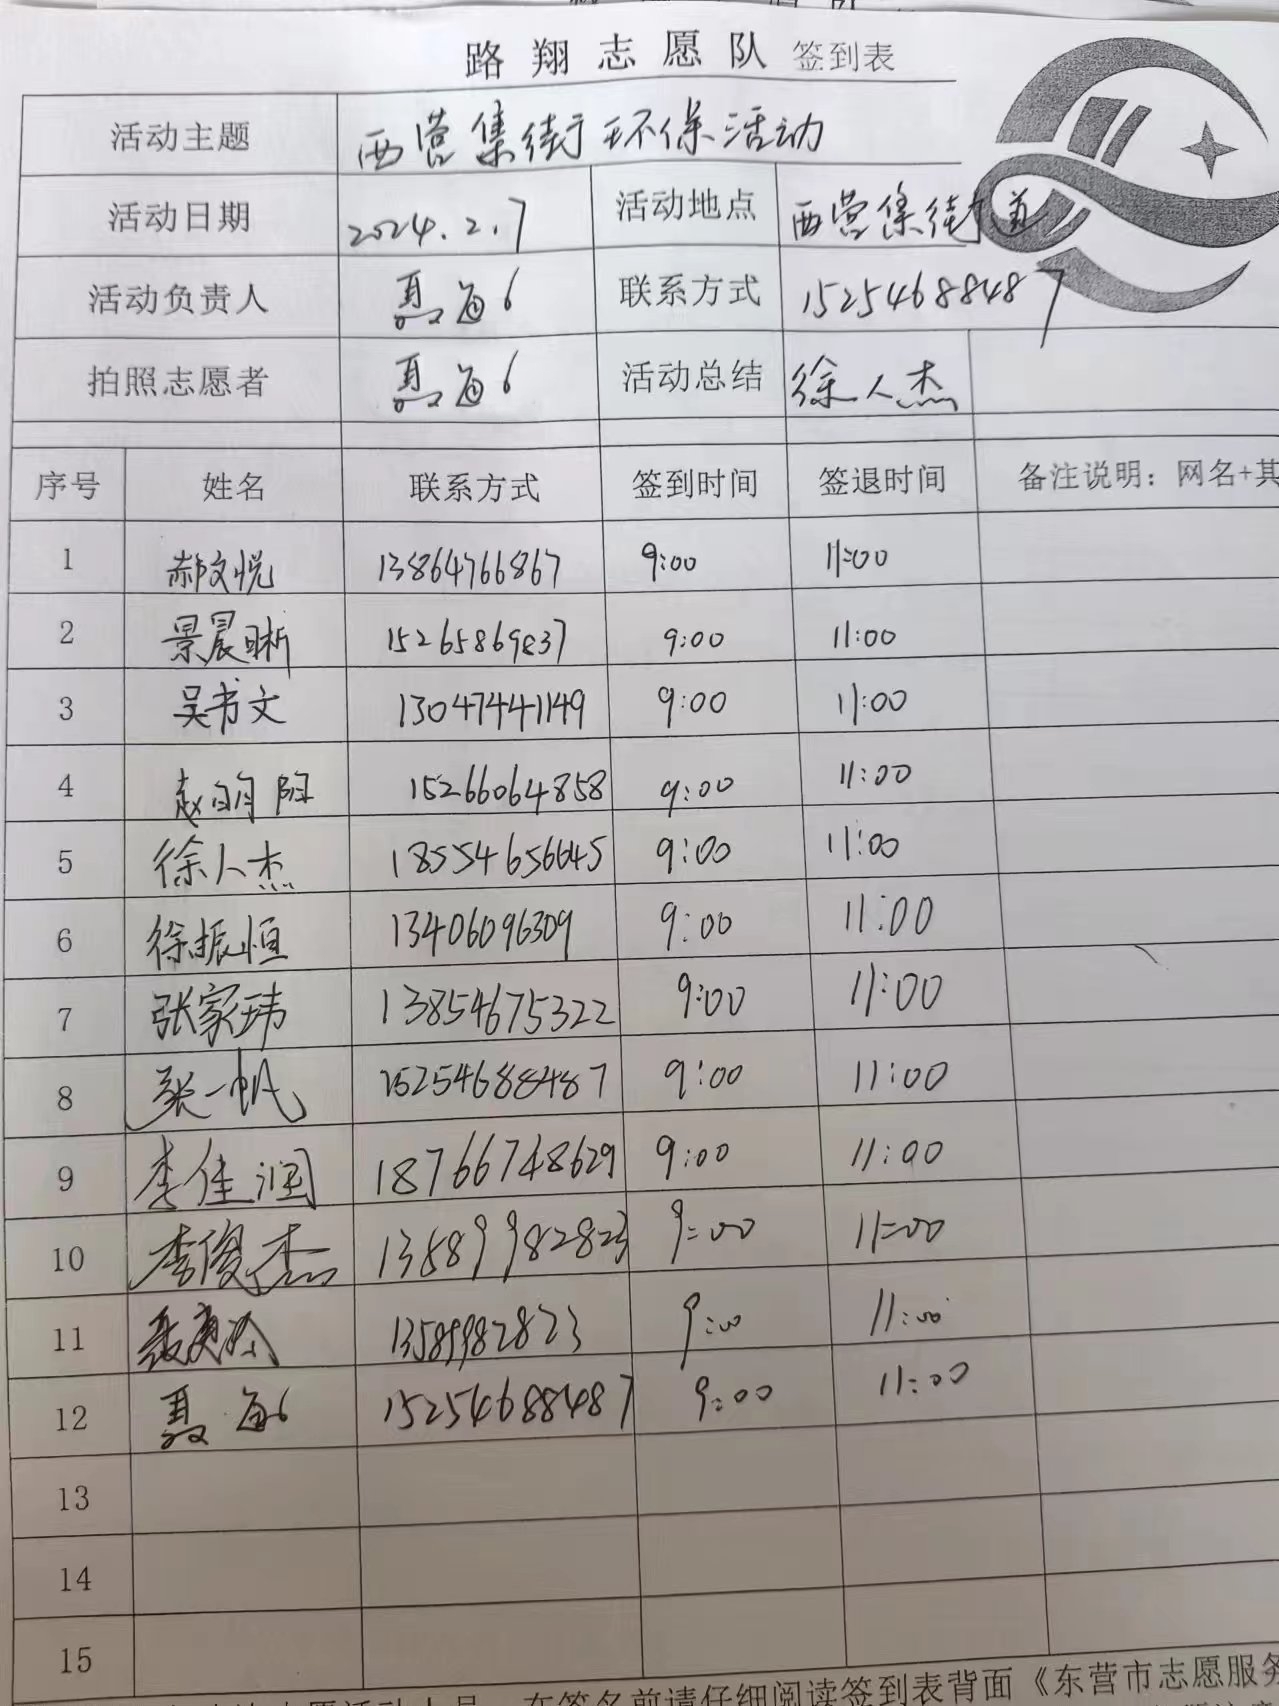 路翔志愿队 签到表
活动主题 西营集街环保活动
活动日期 2024.2.7 活动地点 西营集街道
活动负责人 联系方式 15254688487
拍照志愿者 活动总结 徐人杰
序号 姓名 联系方式 签到时间 签退时间 备注说明：网名+其
1 郝文悦 13864766867 9:00 11:00
2 景晨晰 15265869837 9:00 11:00
3 吴书文 13047441149 9:00 11:00
4 赵明阳 15266064858 9:00 11:00
5 徐人杰 18554656645 9:00 11:00
6 徐振恒 13406096309 9:00 11:00
7 张家玮 13854675322 9:00 11:00
8 张一帆 15254688487 9:00 11:00
9 李佳润 18766748629 9:00 11:00
10 李俊杰 13589982823 9:00 11:00
11 13589982823 9:00 11:00
12 15254688487 9:00 11:00
13
14
15
志愿活动人员，在签名前请仔细阅读签到表背面《东营市志愿服务